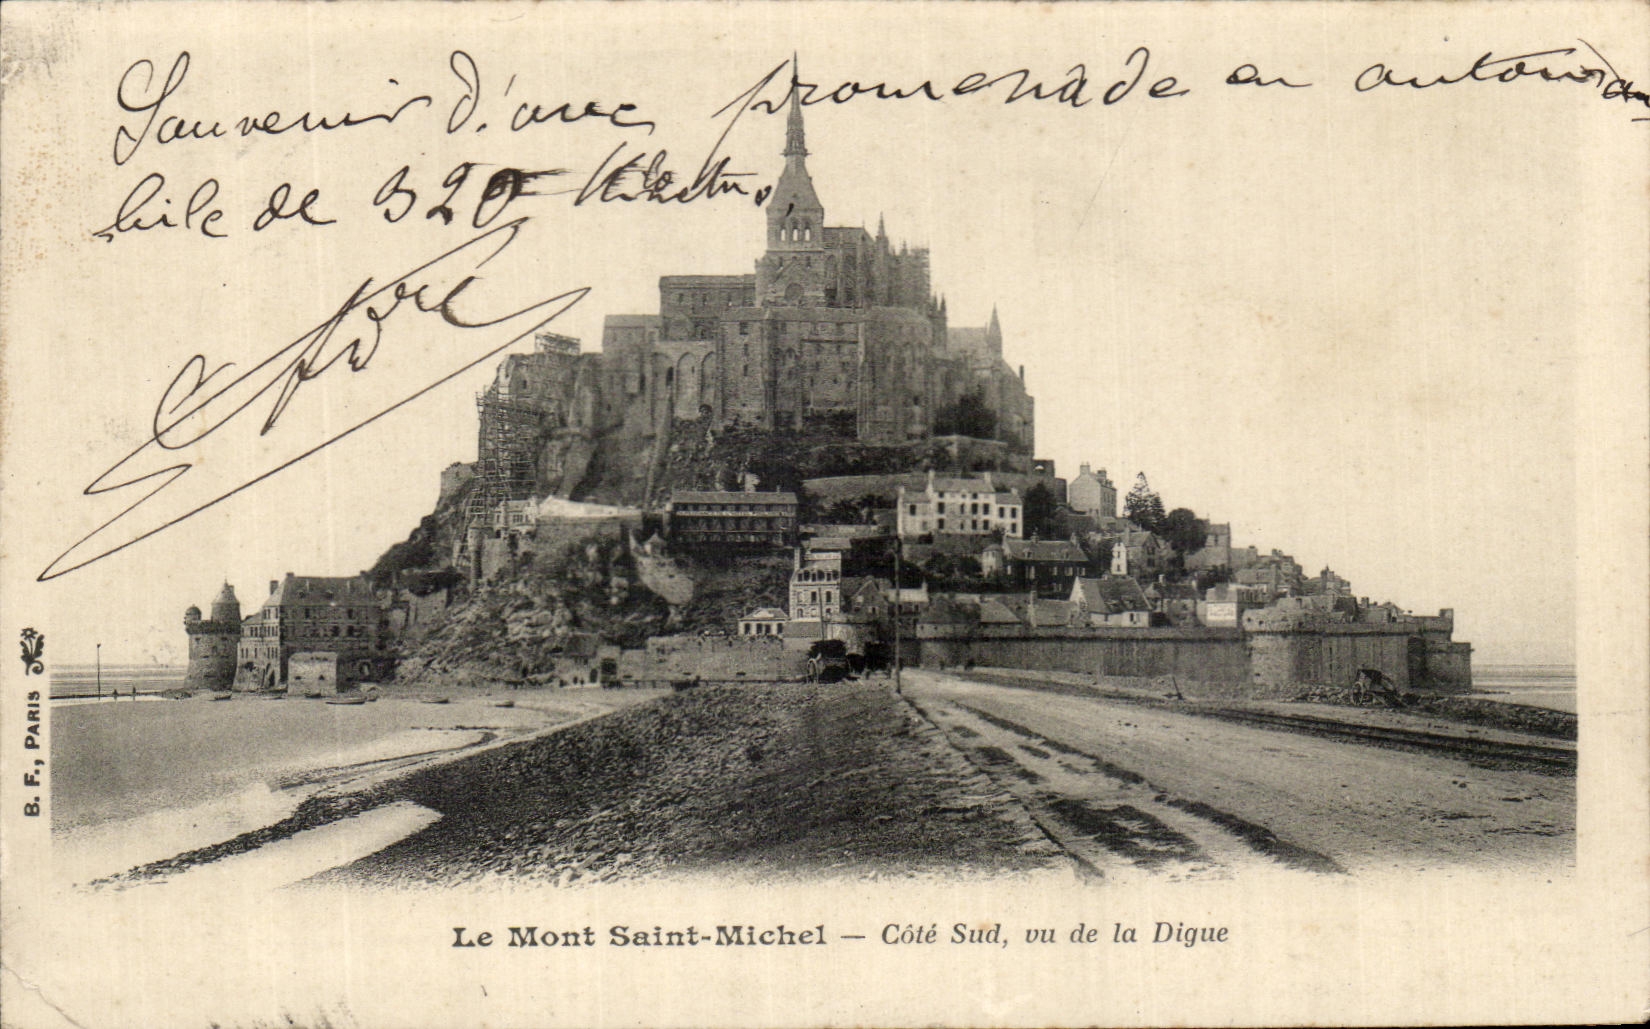 Souvenir d'une promenade en automo
bile de 320
B. F., PARIS
Le Mont Saint-Michel — Côté Sud, vu de la Digue